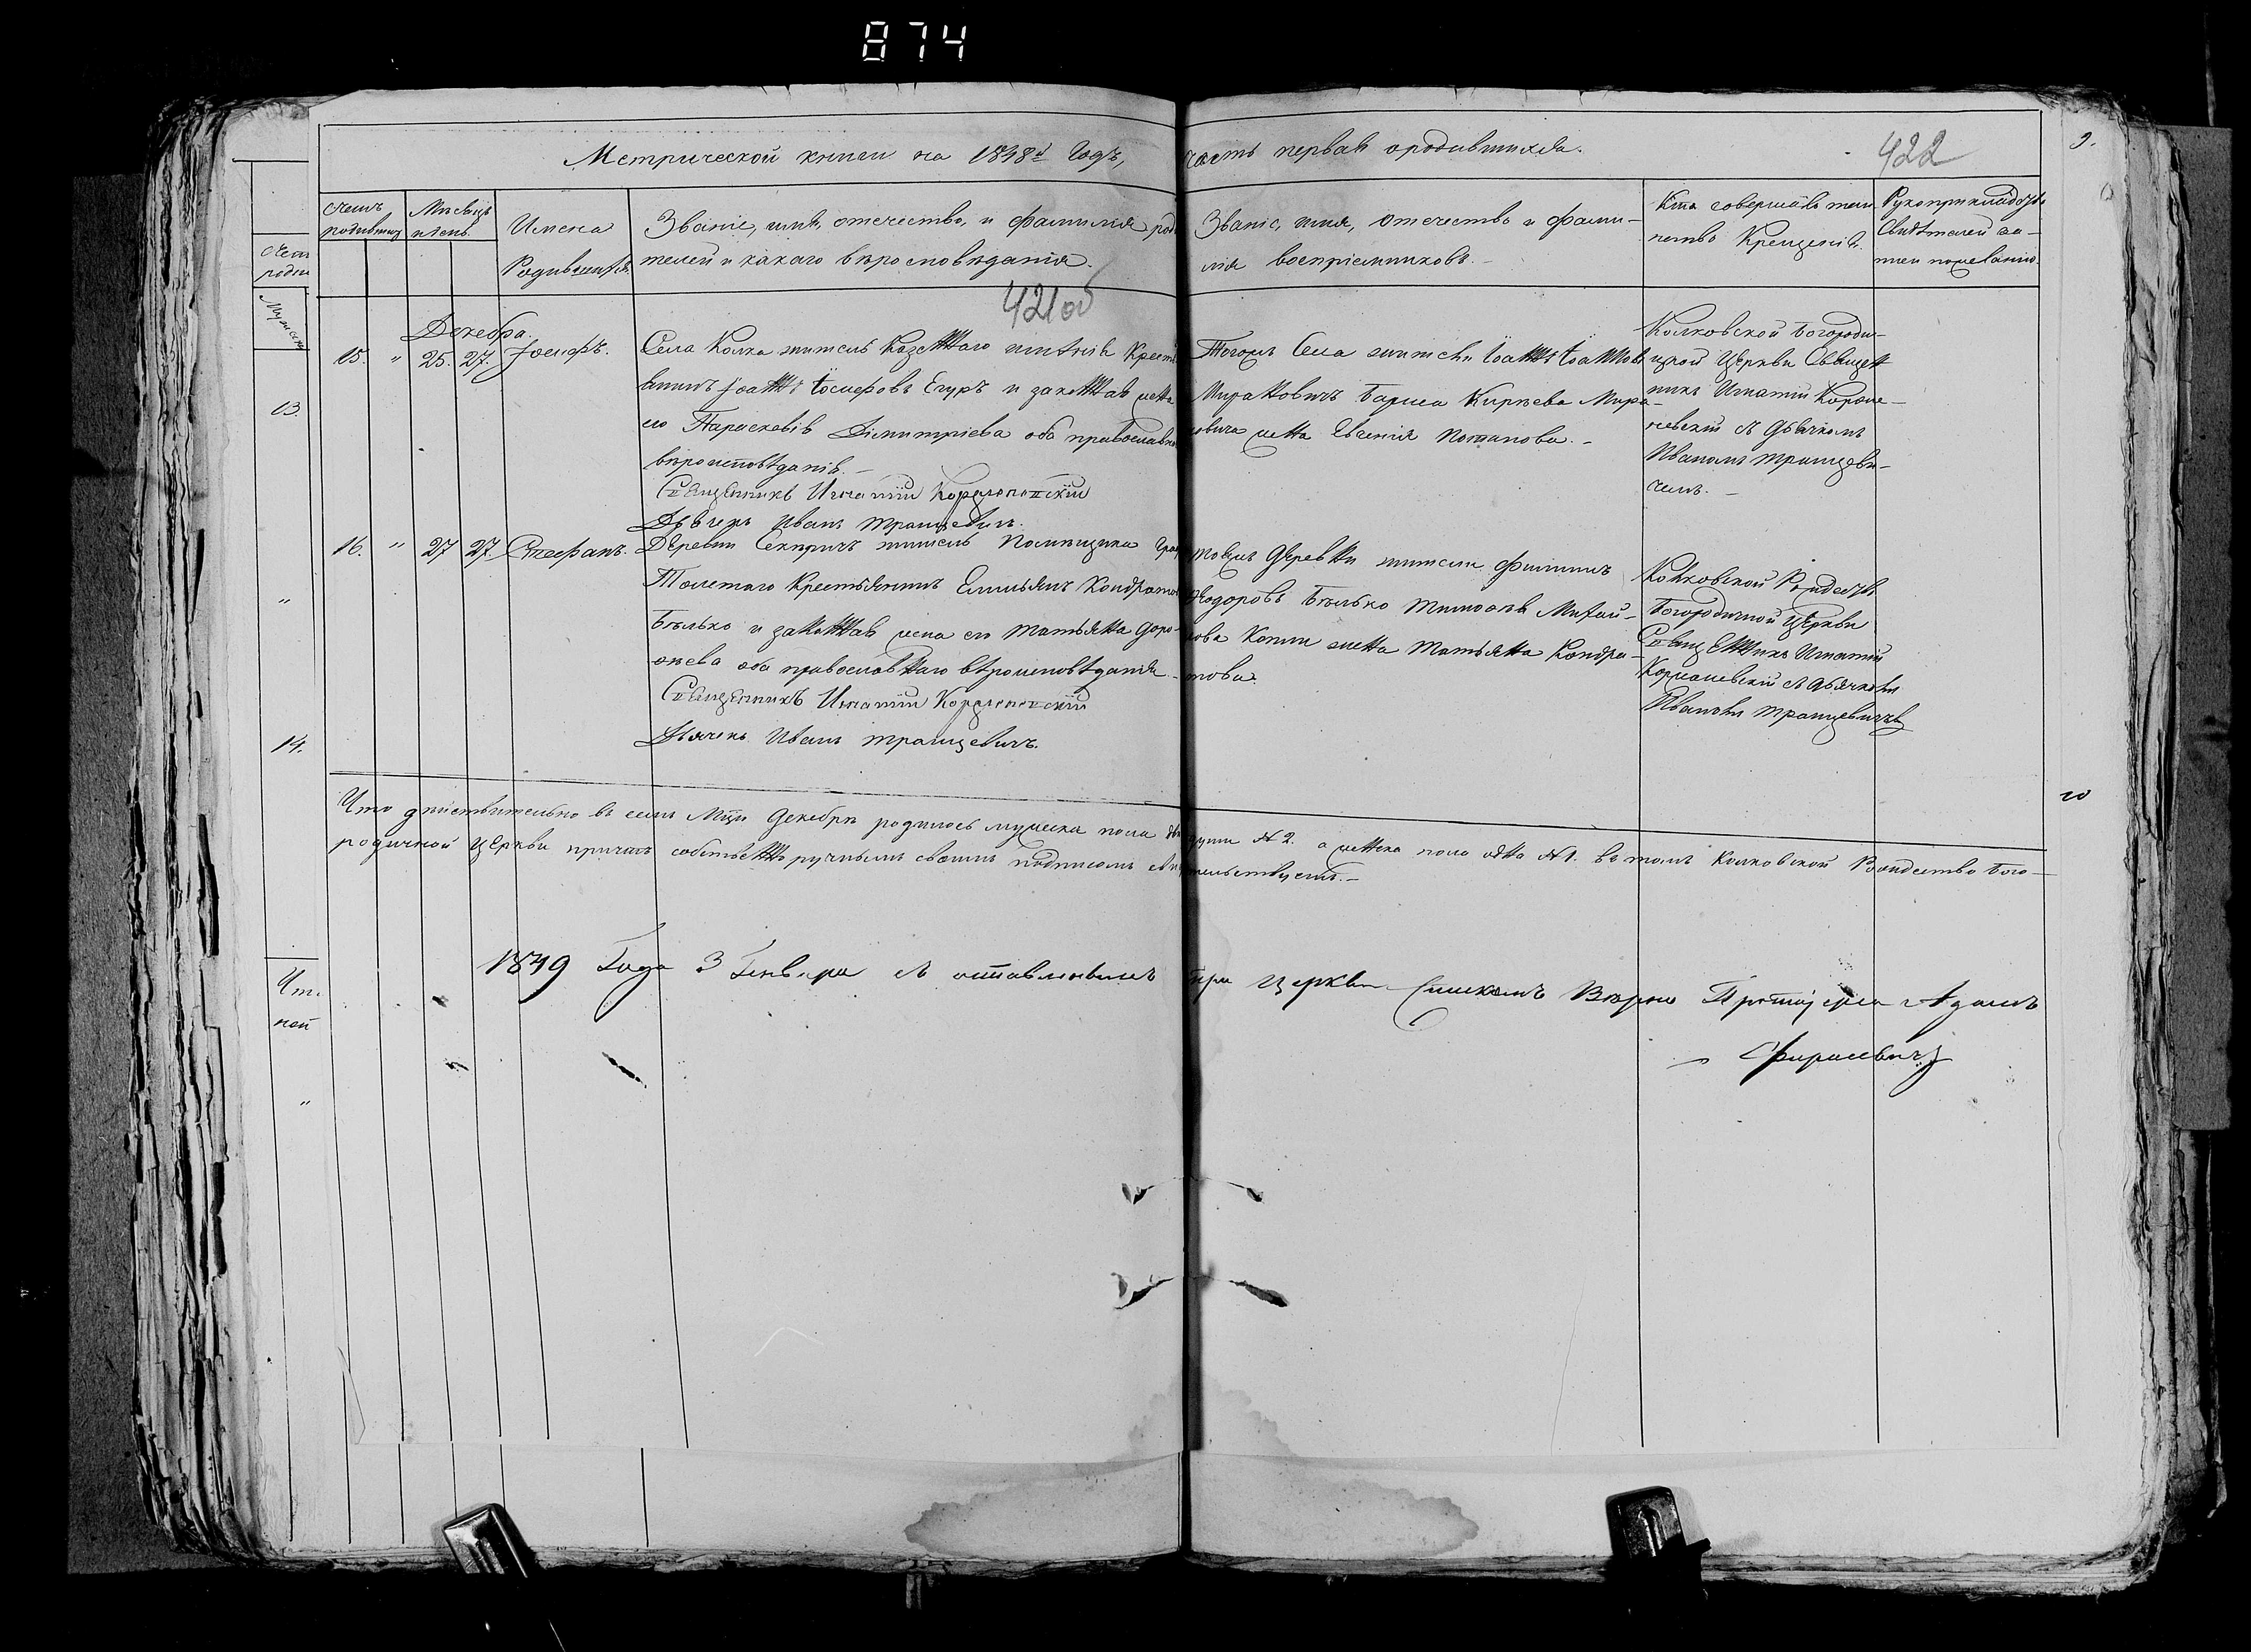 874
Метрической книги на 1848й Годъ, часть первая ородившихся.
422
9.
счетъ родившихъ
Мѣсяцъ и день.
Имена Родившихся.
Званіе, имя, отечество, и фамилія роди
телей и какаго вѣроисповѣданія.
Званіс, имя, отечество и фами-
лія воспріемниковъ.-
Кто совершалъ таин
ство Крещенія.
Рукоприкладство
Свидѣтелей за-
писи пожеланію.
421об
Декебра.
15. " 25. 27. Іосифъ.
Села Колка житель Казеннаго имѣнія Крестя
янинъ Іоаннъ Іосифовъ Егуръ и законная жена
его Параскевія Дімитріева оба православна
вѣроисповѣданія.-
Священникъ Игнатій
Дьячекъ Иванъ Транцевичъ.
Тогожъ Села жители Іоаннъ Іоаннов
Миранович Бориса Киріева Мира-
новича жена Евгенія Потапова.-
Колковской Богороди-
цкой Церкви Священ
никъ Игнатій
съ Дьячкомъ
Иваномъ Транцеви-
чемъ.-
16. " 27 27. Стефанъ.
Деревни житель Помѣщика Гра
Толстаго Крестьянинъ Емильянъ Кондрато
Бѣлько и законная жена его Татьянна Доро-
ѳеева оба православнаго вѣроисповѣданія
Священникъ Игнатій
Дьячекъ Иванъ Транцевичъ.
товжъ Деревни жители Филиппъ
Ѳедоровъ Бѣлько Тимоѳея Михай-
лова жена Татьянна Кондра-
това.
Колковской Рождеств
Богородичной Церкви
Священникъ Игнатій
съ Дьячкомъ
Иваномъ Транцевичемъ
13.
"
14.
Что дѣйствительно въ семъ Мцѣ Декебрѣ родилось мужеска пола двѣ души №2. а женска пола одна №1. въ томъ Колковской Рождество Бого-
родичной Церкви причтъ собственноручнымъ своимъ подписомъ свидѣтельствуетъ.-
20
1849 Года 3 Генваря съ оставленнымъ при Церкви Спискомъ Вѣрно Протоіерей Адамъ
Что
ной
"